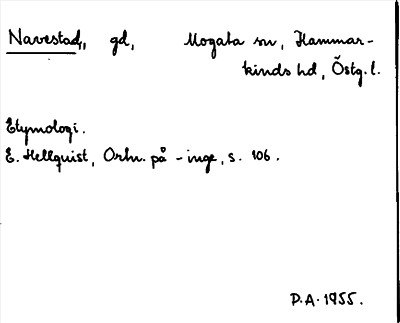 Navestad, gd, Mogata sn, Hammar-
kinds hd, Östg. l.
Etymologi.
E. Hellquist, Ortn. på -inge, s. 106.
P.A. 1955.